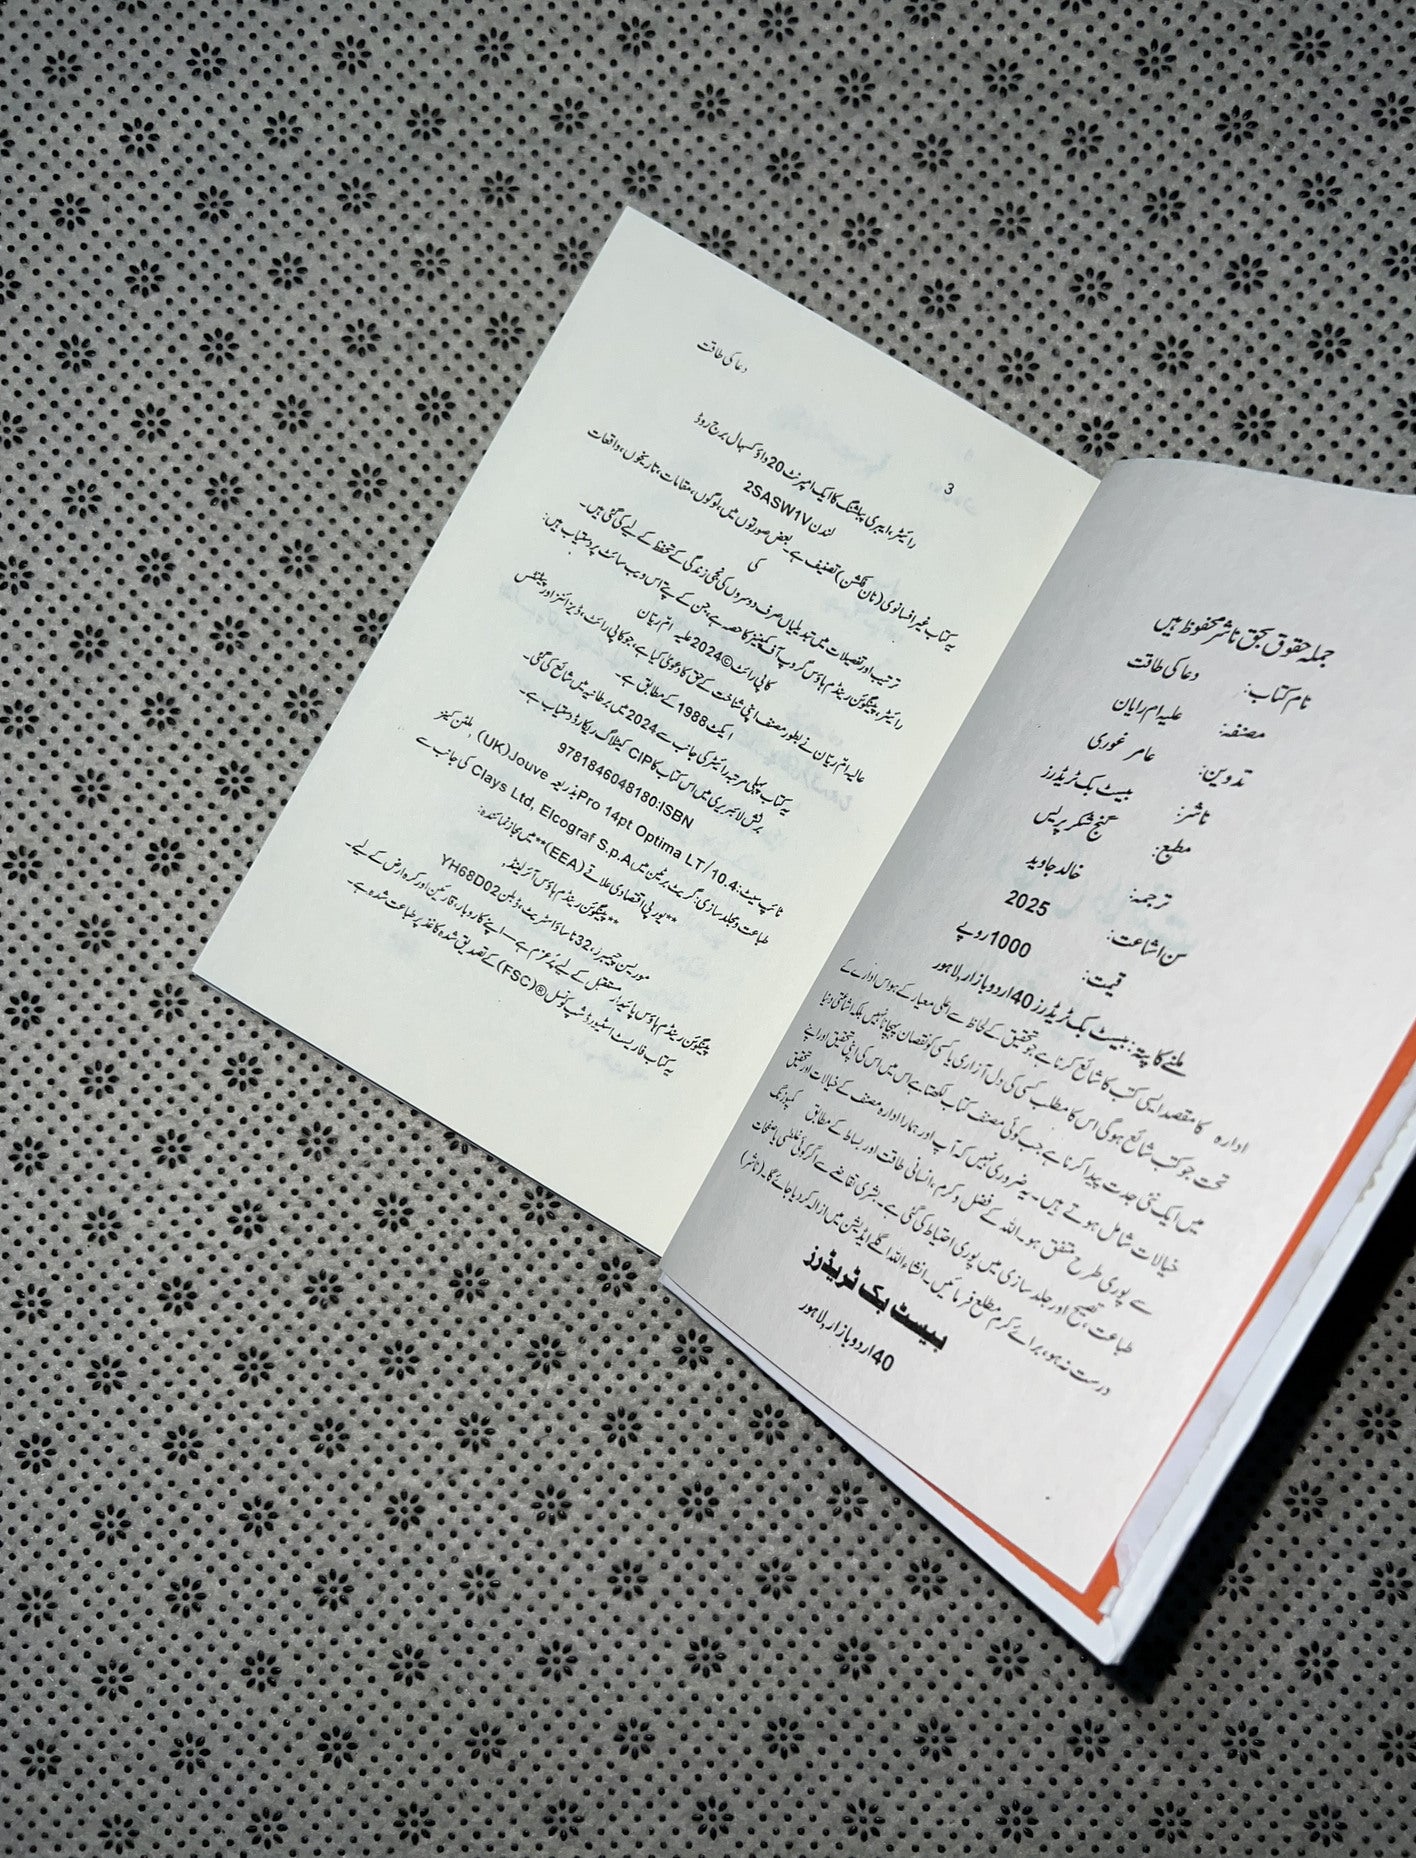 جملہ حقوق بحق ناشر محفوظ ہیں
نام کتاب: دعا کی طاقت
مصنفہ: علیہ ام رایان
تدوین: عامر غوری
ناشر: بیسٹ بک ٹریڈرز
مطبع: گنج شکر پریس
ترجمہ: خالد جاوید
سن اشاعت: 2025
قیمت: 1000روپے
ملنے کا پتہ: بیسٹ بک ٹریڈرز 40اردو بازار، لاہور
ادارہ کا مقصد ایسی کتب کا شائع کرنا ہے جو تحقیق کے لحاظ سے اعلی معیار کے ہو اس ادارے کے
تحت جو کتب شائع ہوگی اس کا مطلب کسی کی دل آزاری یا کسی کو نقصان پہچانا نہیں بلکہ اشاعتی دنیا
میں ایک نئی جدت پیدا کرنا ہے جب کوئی مصنف کتاب لکھتا ہے اس میں اس کی اپنی تحقیق اور اپنے
خیالات شامل ہوتے ہیں۔ یہ ضروری نہیں کہ آپ اور ہمارا ادارہ مصنف کے خیالات اور تحقیق
سے پوری طرح متفق ہو۔ اللہ کے فضل و کرم، انسانی طاقت اور بساط کے مطابق کمپوزنگ
طباعت، تصیح اور جلد سازی میں پوری احتیاط کی گئی ہے۔ بشری تقاضے سے اگر کوئی غلطی یا صفحات
درست نہ ہو، برائے کرم مطلع فرمائیں۔ انشاء اللہ اگلے ایڈیشن میں ازالہ کر دیا جائے گا۔ (ناشر)
بیسٹ بک ٹریڈرز
40اردو بازار، لاہور
3
دعا کی طاقت
رائیٹر، ایبری پبلشنگ کا ایک امپرنٹ 20 واؤکسہال برج روڈ
لندن 2SASW1V
یہ کتاب غیر افسانوی (نان فکشن) تصنیف ہے۔ بعض صورتوں میں، لوگوں، مقامات، تاریخوں، واقعات
کی
ترتیب اور تفصیلات میں تبدیلیاں صرف دوسروں کی نجی زندگی کے تحفظ کے لیے کی گئی ہیں۔
رائیٹر، پینگوئن رینڈم ہاؤس گروپ آف کمپنیز کا حصہ ہے، جن کے پتے اس ویب سائٹ پر دستیاب ہیں:
کاپی رائٹ ©2024 علیہ ام ریان
عالیہ ام ریان نے بطور مصنف اپنی شناخت کے حق کا دعویٰ کیا ہے، جو کاپی رائٹ، ڈیزائنز اور پیٹنٹس
ایکٹ 1988 کے مطابق ہے۔
یہ کتاب پہلی مرتبہ رائیٹر کی جانب سے 2024 میں برطانیہ میں شائع کی گئی۔
برٹش لائبریری میں اس کتاب کا CIP کیٹلاگ ریکارڈ دستیاب ہے۔
9781846048180:ISBN
ٹائپ سیٹ: 10.4/14pt Optima LT Pro بذریعہ Jouve (UK)، ملٹن کینز
طباعت و جلد سازی: گریٹ برٹین میں Clays Ltd, Elcograf S.p.A کی جانب سے
**یورپی اقتصادی علاقے (EEA)** میں مجاز نمائندہ:
**پینگوئن رینڈم ہاؤس آئرلینڈ،
موریسن چیمبرز، 32 ناساؤ اسٹریٹ، ڈبلن YH68D02
پینگوئن رینڈم ہاؤس پائیدار مستقبل کے لیے پُرعزم ہے — اپنے کاروبار، قارئین اور کرہ ارض کے لیے۔
یہ کتاب فاریسٹ اسٹیورڈشپ کونسل ® (FSC) کے تصدیق شدہ کاغذ پر طباعت شدہ ہے۔